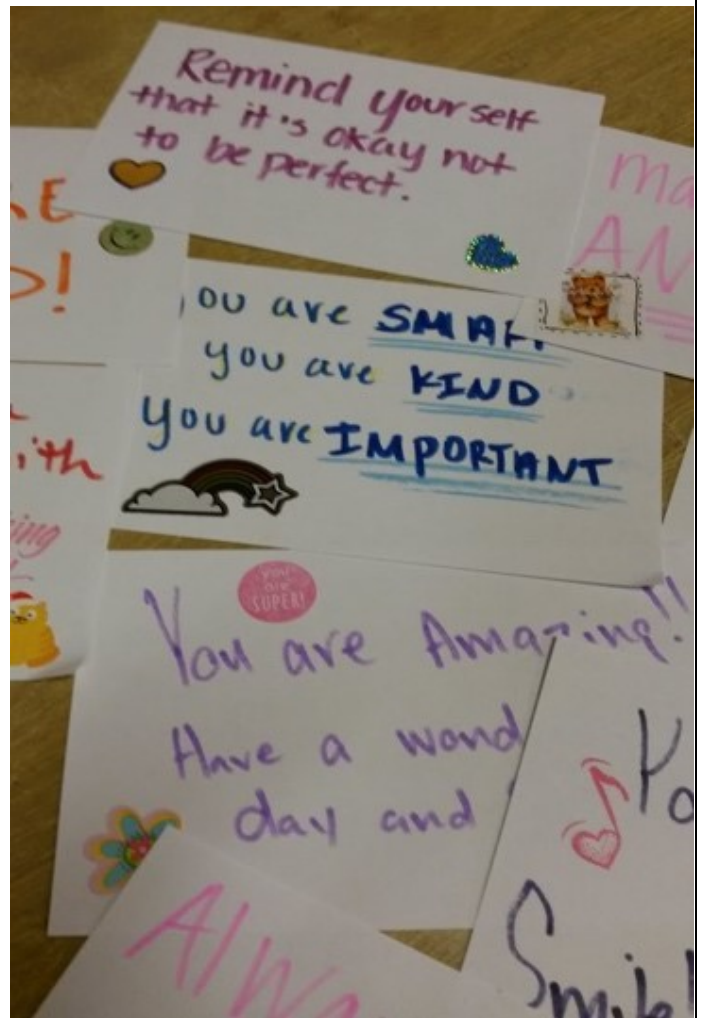 Remind yourself
that it's okay not
to be perfect.
RE
D!
ma
AN
you are SMAR
you are KIND
You are IMPORTANT
ith
ing
you
are
SUPER!
You are Amazing!!
Have a wond
day and
Yo
Smile!
Alwa